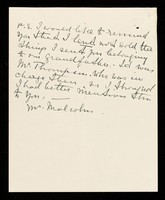 P.S. I would like to remind
you that I lend not sold the
things I sent you belonging
to our Grandfather. It was
Mr. Thompson who was in
charge then, so I thought
I had better mention this
to you.
Mr. Malcolm